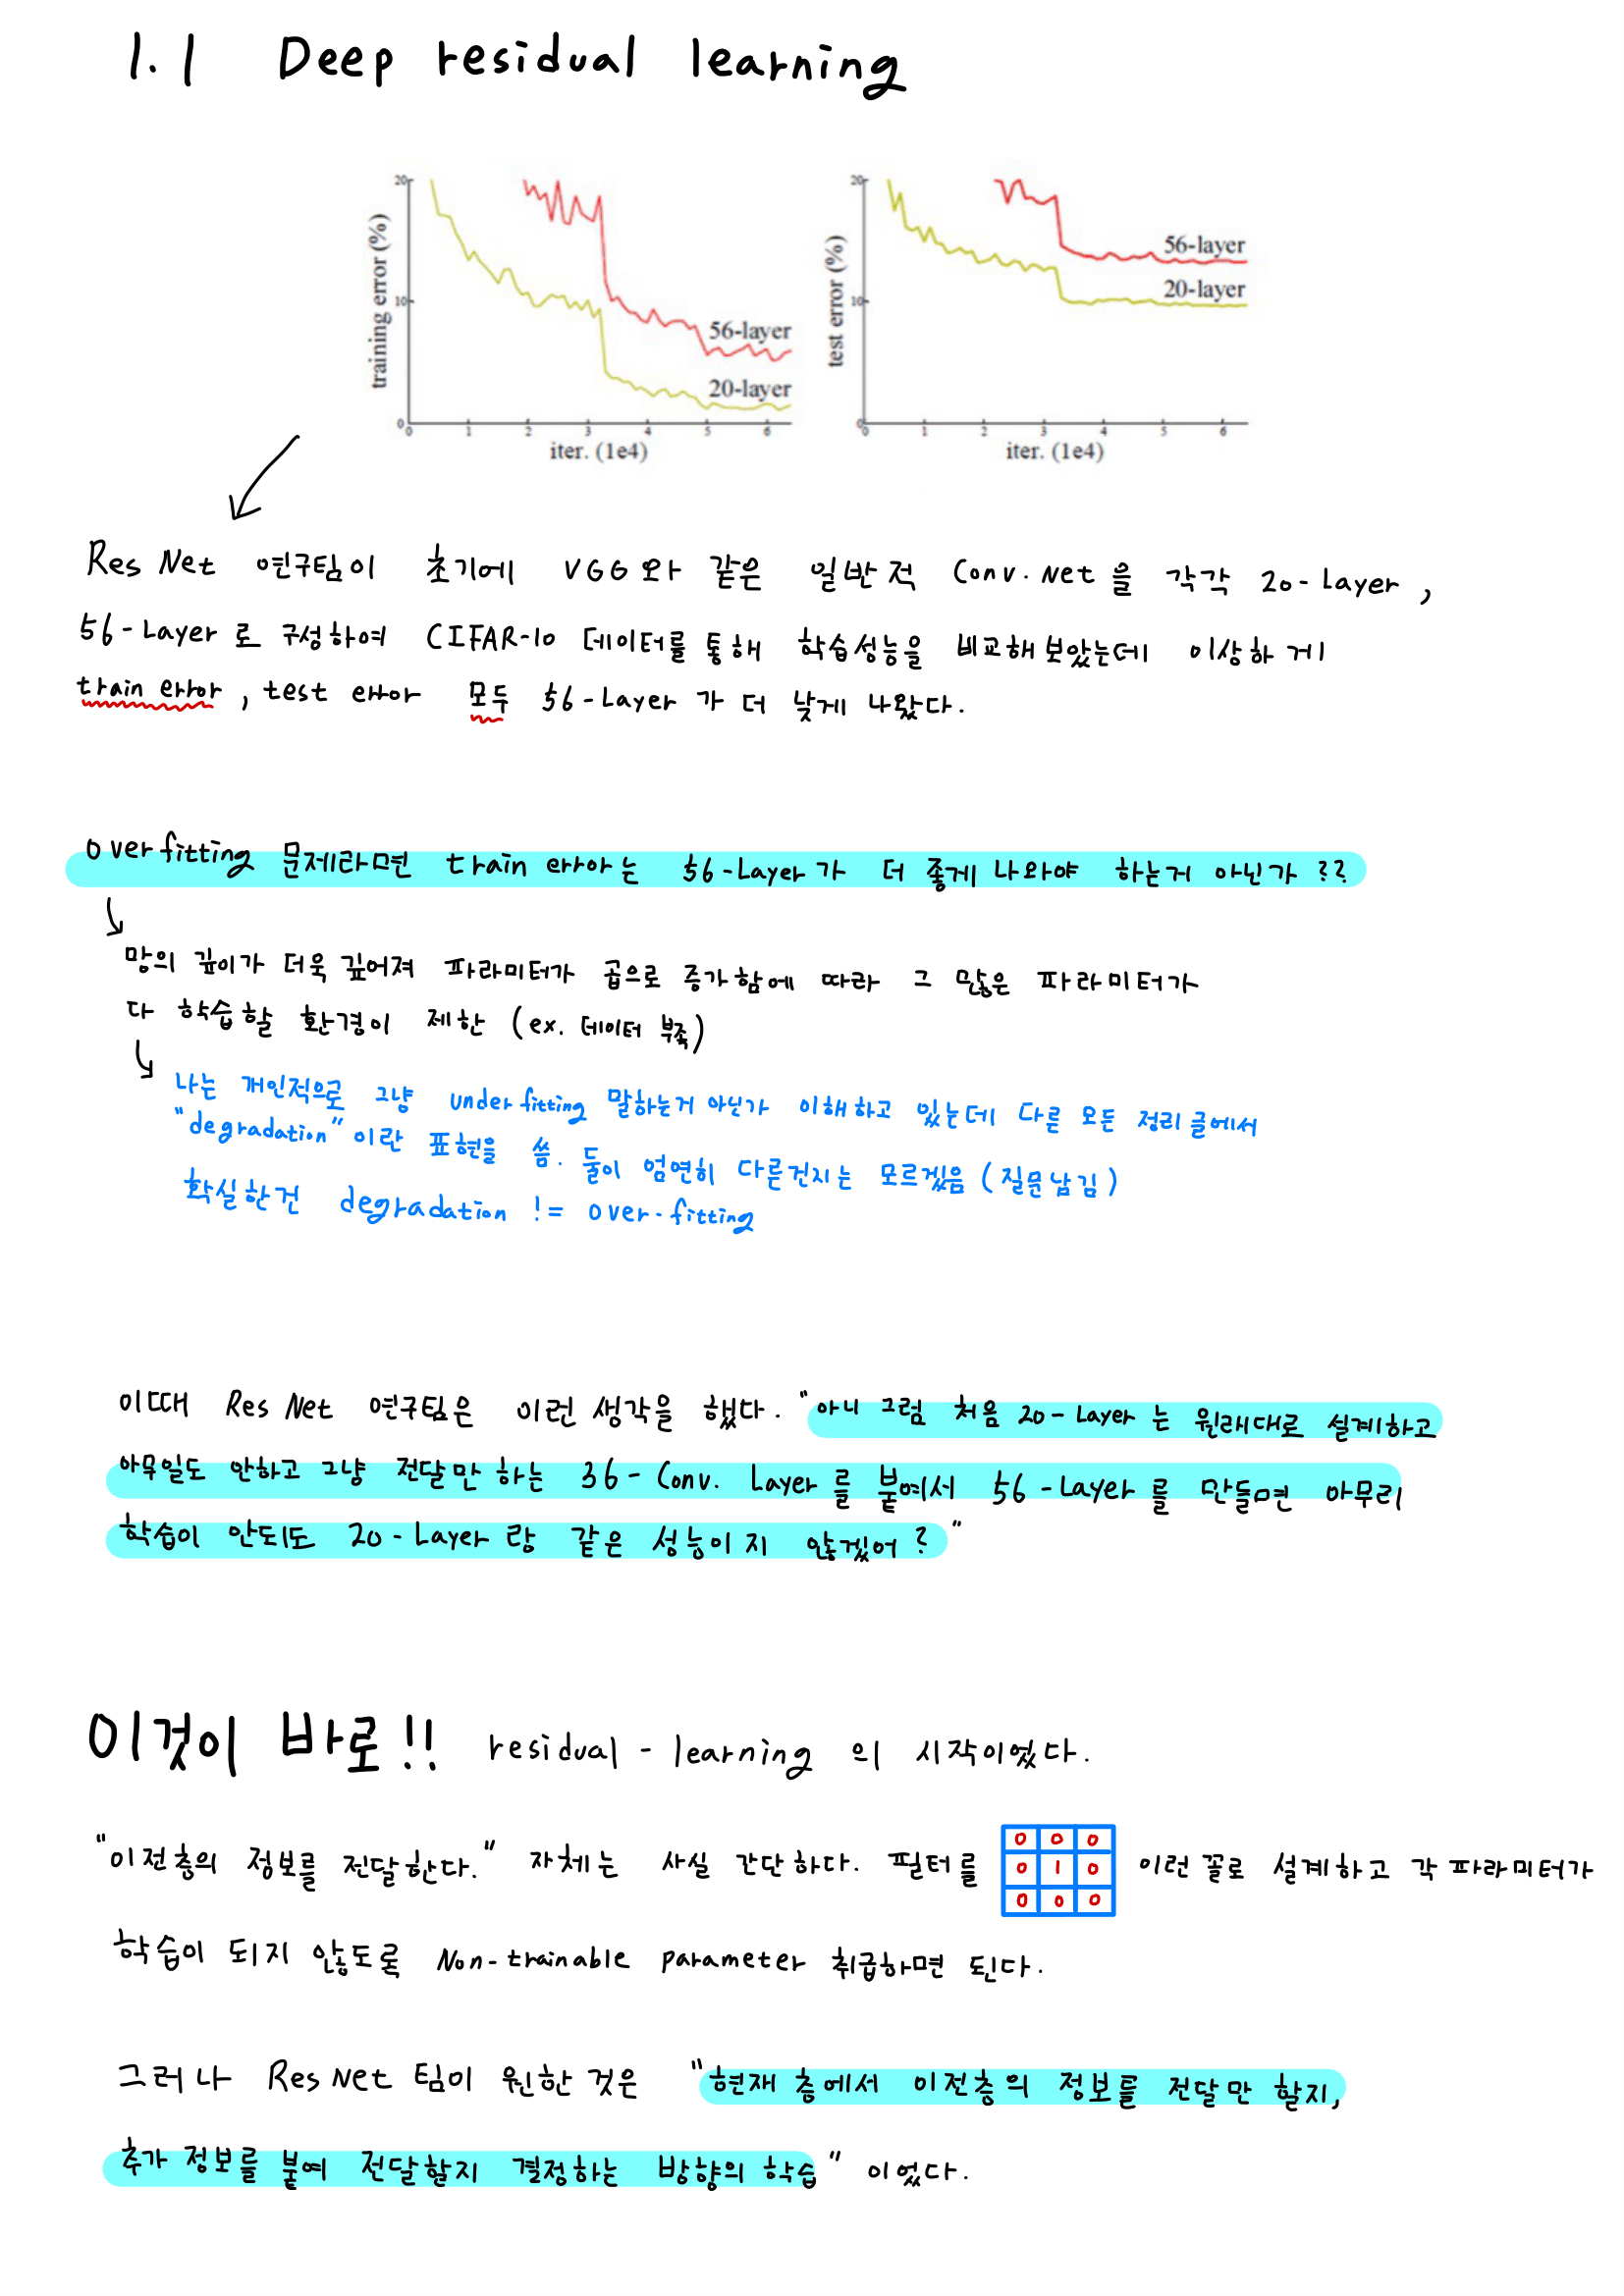 1.1 Deep residual learning
20
training error (%)
10
56-layer
20-layer
0
0 1 2 3 4 5 6
iter. (1e4)
20
test error (%)
10
56-layer
20-layer
0
0 1 2 3 4 5 6
iter. (1e4)
ResNet 연구팀이 초기에 VGG와 같은 일반적 Conv.Net을 각각 20-Layer,
56-Layer로 구성하여 CIFAR-10 데이터를 통해 학습성능을 비교해보았는데 이상하게
train error, test error 모두 56-Layer가 더 낮게 나왔다.
overfitting 문제라면 train error는 56-Layer가 더 좋게 나와야 하는거 아닌가??
망의 깊이가 더욱 깊어져 파라미터가 곱으로 증가함에 따라 그 많은 파라미터가
다 학습할 환경이 제한 (ex. 데이터 부족)
나는 개인적으로 그냥 underfitting 말하는거 아닌가 이해하고 있는데 다른 모든 정리글에서
"degradation"이란 표현을 씀. 둘이 엄연히 다른건지는 모르겠음 (질문남김)
확실한건 degradation != over-fitting
이때 ResNet 연구팀은 이런 생각을 했다. "아니 그럼 처음 20-Layer는 원래대로 설계하고
아무일도 안하고 그냥 전달만 하는 36-Conv. Layer를 붙여서 56-Layer를 만들면 아무리
학습이 안되도 20-Layer랑 같은 성능이지 않겠어?"
이것이 바로!! residual-learning의 시작이었다.
"이전층의 정보를 전달한다." 자체는 사실 간단하다. 필터를 이런 꼴로 설계하고 각 파라미터가
0 0 0
0 1 0
0 0 0
학습이 되지 않도록 Non-trainable parameter 취급하면 된다.
그러나 ResNet 팀이 원한 것은 "현재 층에서 이전층의 정보를 전달만 할지,
추가 정보를 붙여 전달할지 결정하는 방향의 학습" 이었다.